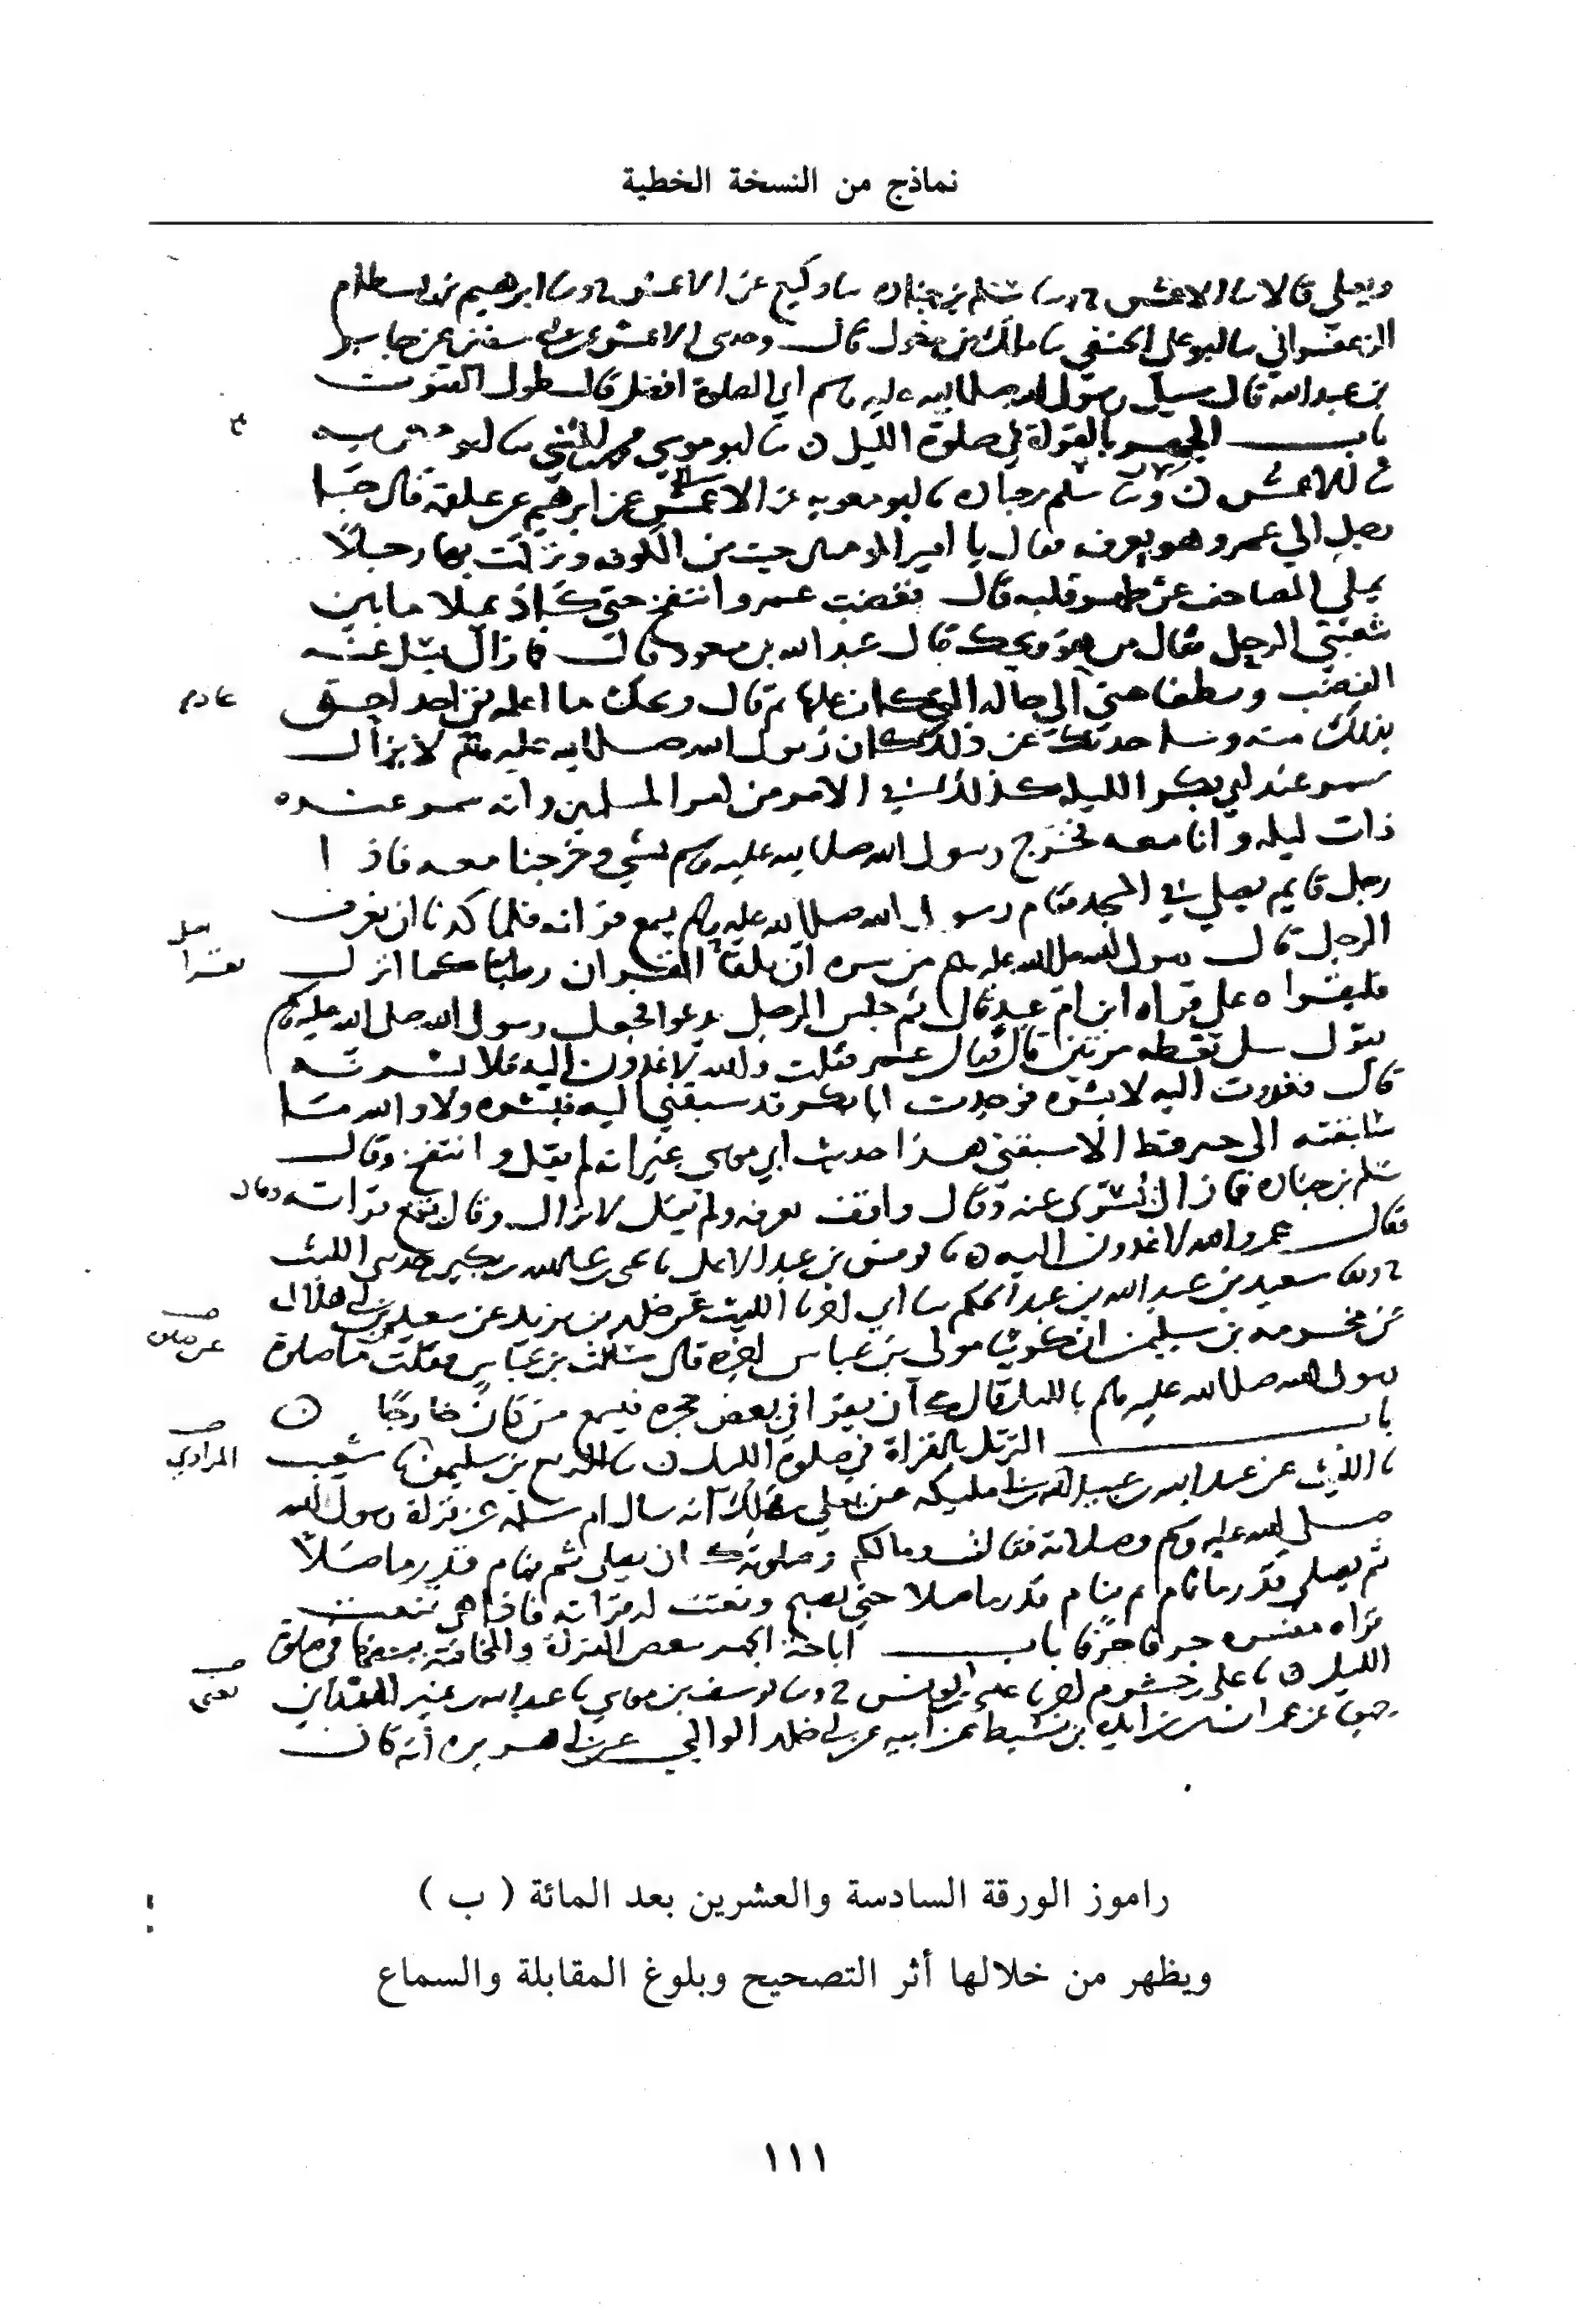 نماذج من النسخة الخطية
ويعلي قالا سا الاعمش ح وسا سلم بن جناده سا وكيع عن الاعمش ح وسا ابرهيم بن بسطام
الزعفراني سا ابو علي الحنفي سا ملك بن مغول قال وحدثني الاعمش عن ابي سفين عن جابر
بن عبدالله قال سيل رسول الله صلى الله عليه وسلم اي الصلوة افضل قال طول القنوت
باب الجهر بالقراة في صلوة الليل ن سا ابو موسي محمد بن المثني سا ابو معويه
سا الاعمش ن وسا سلم بن جناده سا ابو معويه عن الاعمش عن ابرهيم عن علقمة قال جا
رجل الي عمر وهو بعرفه فقال يا امير المومنين جيت من الكوفه وتركت بها رجلا
يملي المصاحف عن ظهر قلبه قال فغضب عمر وانتفخ حتى كاد يملا ما بين
شعبتي الرحل فقال من هو ويحك قال عبد الله بن مسعود قال فما زال يسل عنه
الغضب ويطفا حتي الي حاله التي كان عليها ثم قال ويحك ما اعلم بقي احد احق
عادم
بذلك منه وسا حدثك عن ذلك كان رسول الله صلى الله عليه وسلم لا يزال
يسمر عند ابي بكر الليله كذلك في الامر من امر المسلمين وانه سمر عنده
ذات ليله وانا معه فخرج رسول الله صلى الله عليه وسلم يمشي وخرجنا معه فاذا
رجل قايم يصلي في المسجد فقام رسول الله صلى الله عليه وسلم يسمع قراته فلما كدنا ان نعرف
الرجل قال رسول الله صلى الله عليه وسلم من سره ان يقرا القران رطبا كما انزل
فليقراه على قراه ابن ام عبد قال ثم جلس الرجل يدعو فجعل رسول الله صلى الله عليه وسلم
يقول سل تعطه مرتين قال فقال عمر فقلت والله لاغدون اليه فلا بشرنه
قال فغدوت اليه لابشره فوجدت ابا بكر قد سبقني اليه فبشره ولا والله ما
سابقته الى خير قط الا سبقني هذا حديث ابي موسى غير انه لم يقل وانتفخ وقال
سلم بن جناده فما زال يسرى عنه وقال واقف بعرفه ولم يقل لا يزال وقال يستمع قراته وقال
فقال عمر والله لاغدون اليه ن سا يونس بن عبد الاعلى سا يحيى بن عبدالله بن بكير حدثني الليث
ح وسا سعيد بن عبد الله بن عبد الحكم سا ابي اخبرنا الليث عن خلد بن يزيد عن سعيد بن ابي هلال
عن مخرمه بن سليمن ان كريبا مولى بن عباس اخبره قال سالت بن عباس فقلت ما صلوة
رسول الله صلى الله عليه وسلم بالليل قال كان يقرا في بعض حجره فيسمع من كان خارجا ن
باب الترتل بالقراة في صلوة الليل ن سا الربيع بن سليمن سا شعيب
المرادي
سا الليث عن عبد الله بن عبيد الله بن ابي مليكه عن يعلي بن مملك انه سال ام سلمه عن قراة رسول الله
صلى الله عليه وسلم وصلاته فقالت وما لكم وصلوته كان يصلي ثم ينام قدر ما صلا
ثم يصلي قدر ما نام ثم ينام قدر ما صلا حتى يصبح ونعتت له قراته فاذا هي تنعت
قراه مفسره حرفا حرفا باب اباحة الجهر ببعض القراة والمخافتة ببعضها في صلوة
الليل ن سا علي بن خشرم اخبرنا عيسى بن يونس ح وسا يوسف بن موسي سا عبد الله بن نمير
يعني
جميعا عن عمران بن زايده بن نشيط عن ابيه عن ابي خلد الوالبي عن ابي هريره انه كان
راموز الورقة السادسة والعشرين بعد المائة ( ب )
ويظهر من خلالها أثر التصحيح وبلوغ المقابلة والسماع
١١١